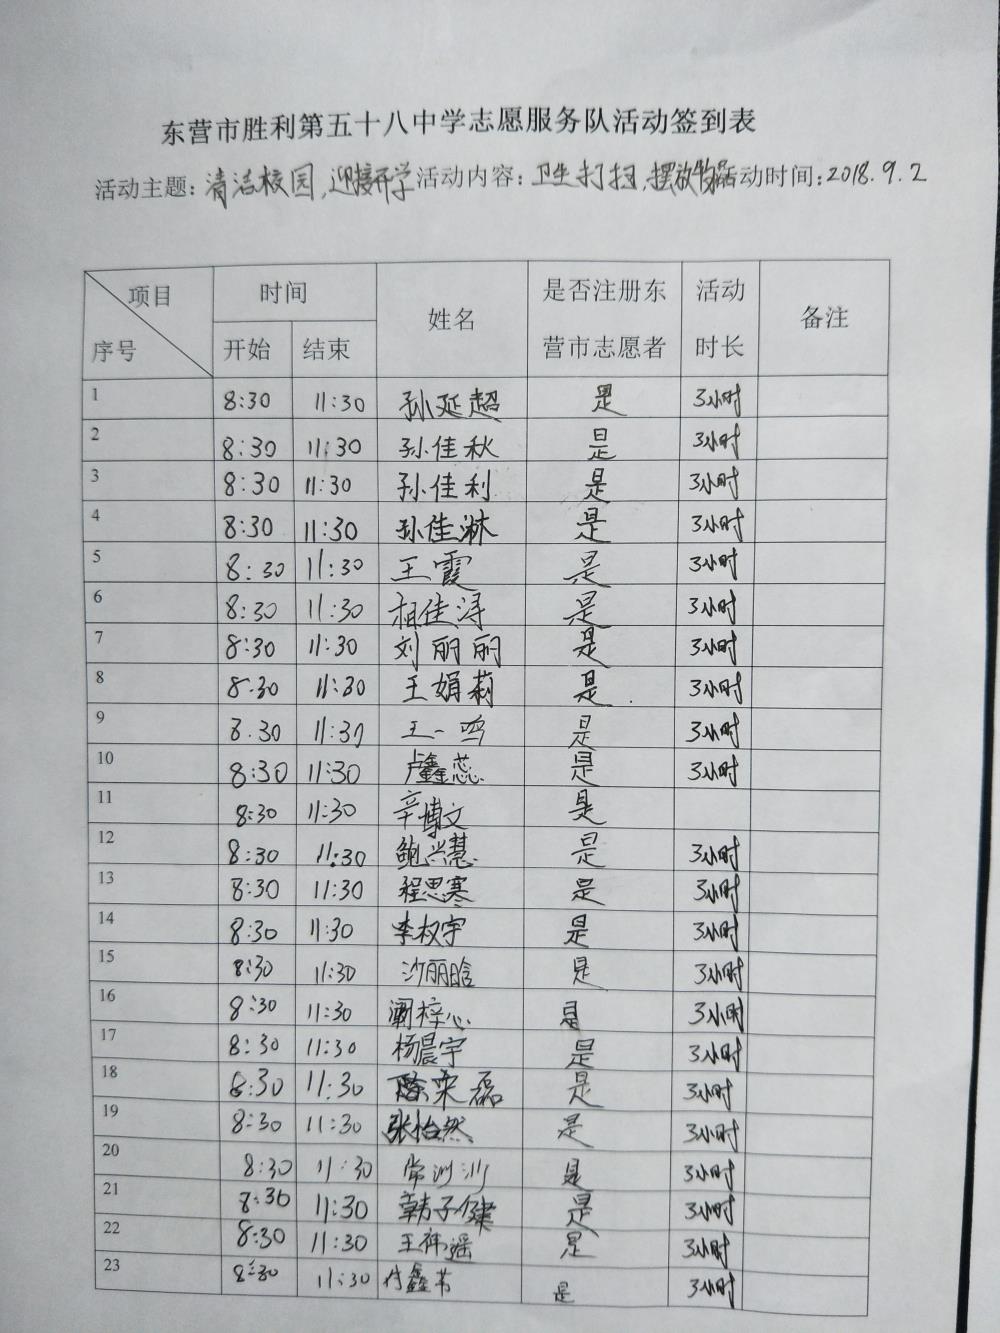 东营市胜利第五十八中学志愿服务队活动签到表
活动主题:清洁校园,迎接开学活动内容:卫生打扫,摆放物品活动时间:2018.9.2
项目 时间 姓名 是否注册东 活动 备注
序号 开始 结束 营市志愿者 时长
1 8:30 11:30 孙延超 是 3小时
2 8:30 11:30 孙佳秋 是 3小时
3 8:30 11:30 孙佳利 是 3小时
4 8:30 11:30 孙佳淋 是 3小时
5 8:30 11:30 王霞 是 3小时
6 8:30 11:30 相佳浔 是 3小时
7 8:30 11:30 刘丽丽 是 3小时
8 8:30 11:30 王娟莉 是 3小时
9 8.30 11:30 王一鸣 是 3小时
10 8:30 11:30 卢鑫蕊 是 3小时
11 8:30 11:30 辛博文 是
12 8:30 11:30 鲍兴慧 是 3小时
13 8:30 11:30 程思寒 是 3小时
14 8:30 11:30 李权宇 是 3小时
15 8:30 11:30 沙丽晗 是 3小时
16 8:30 11:30 梓心 是 3小时
17 8:30 11:30 杨晨宇 是 3小时
18 8:30 11:30 荣磊 是 3小时
19 8:30 11:30 张怡然 是 3小时
20 8:30 11:30 常 是 3小时
21 8:30 11:30 韩子健 是 3小时
22 8:30 11:30 王祎遥 是 3小时
23 8:30 11:30 鑫 是 3小时